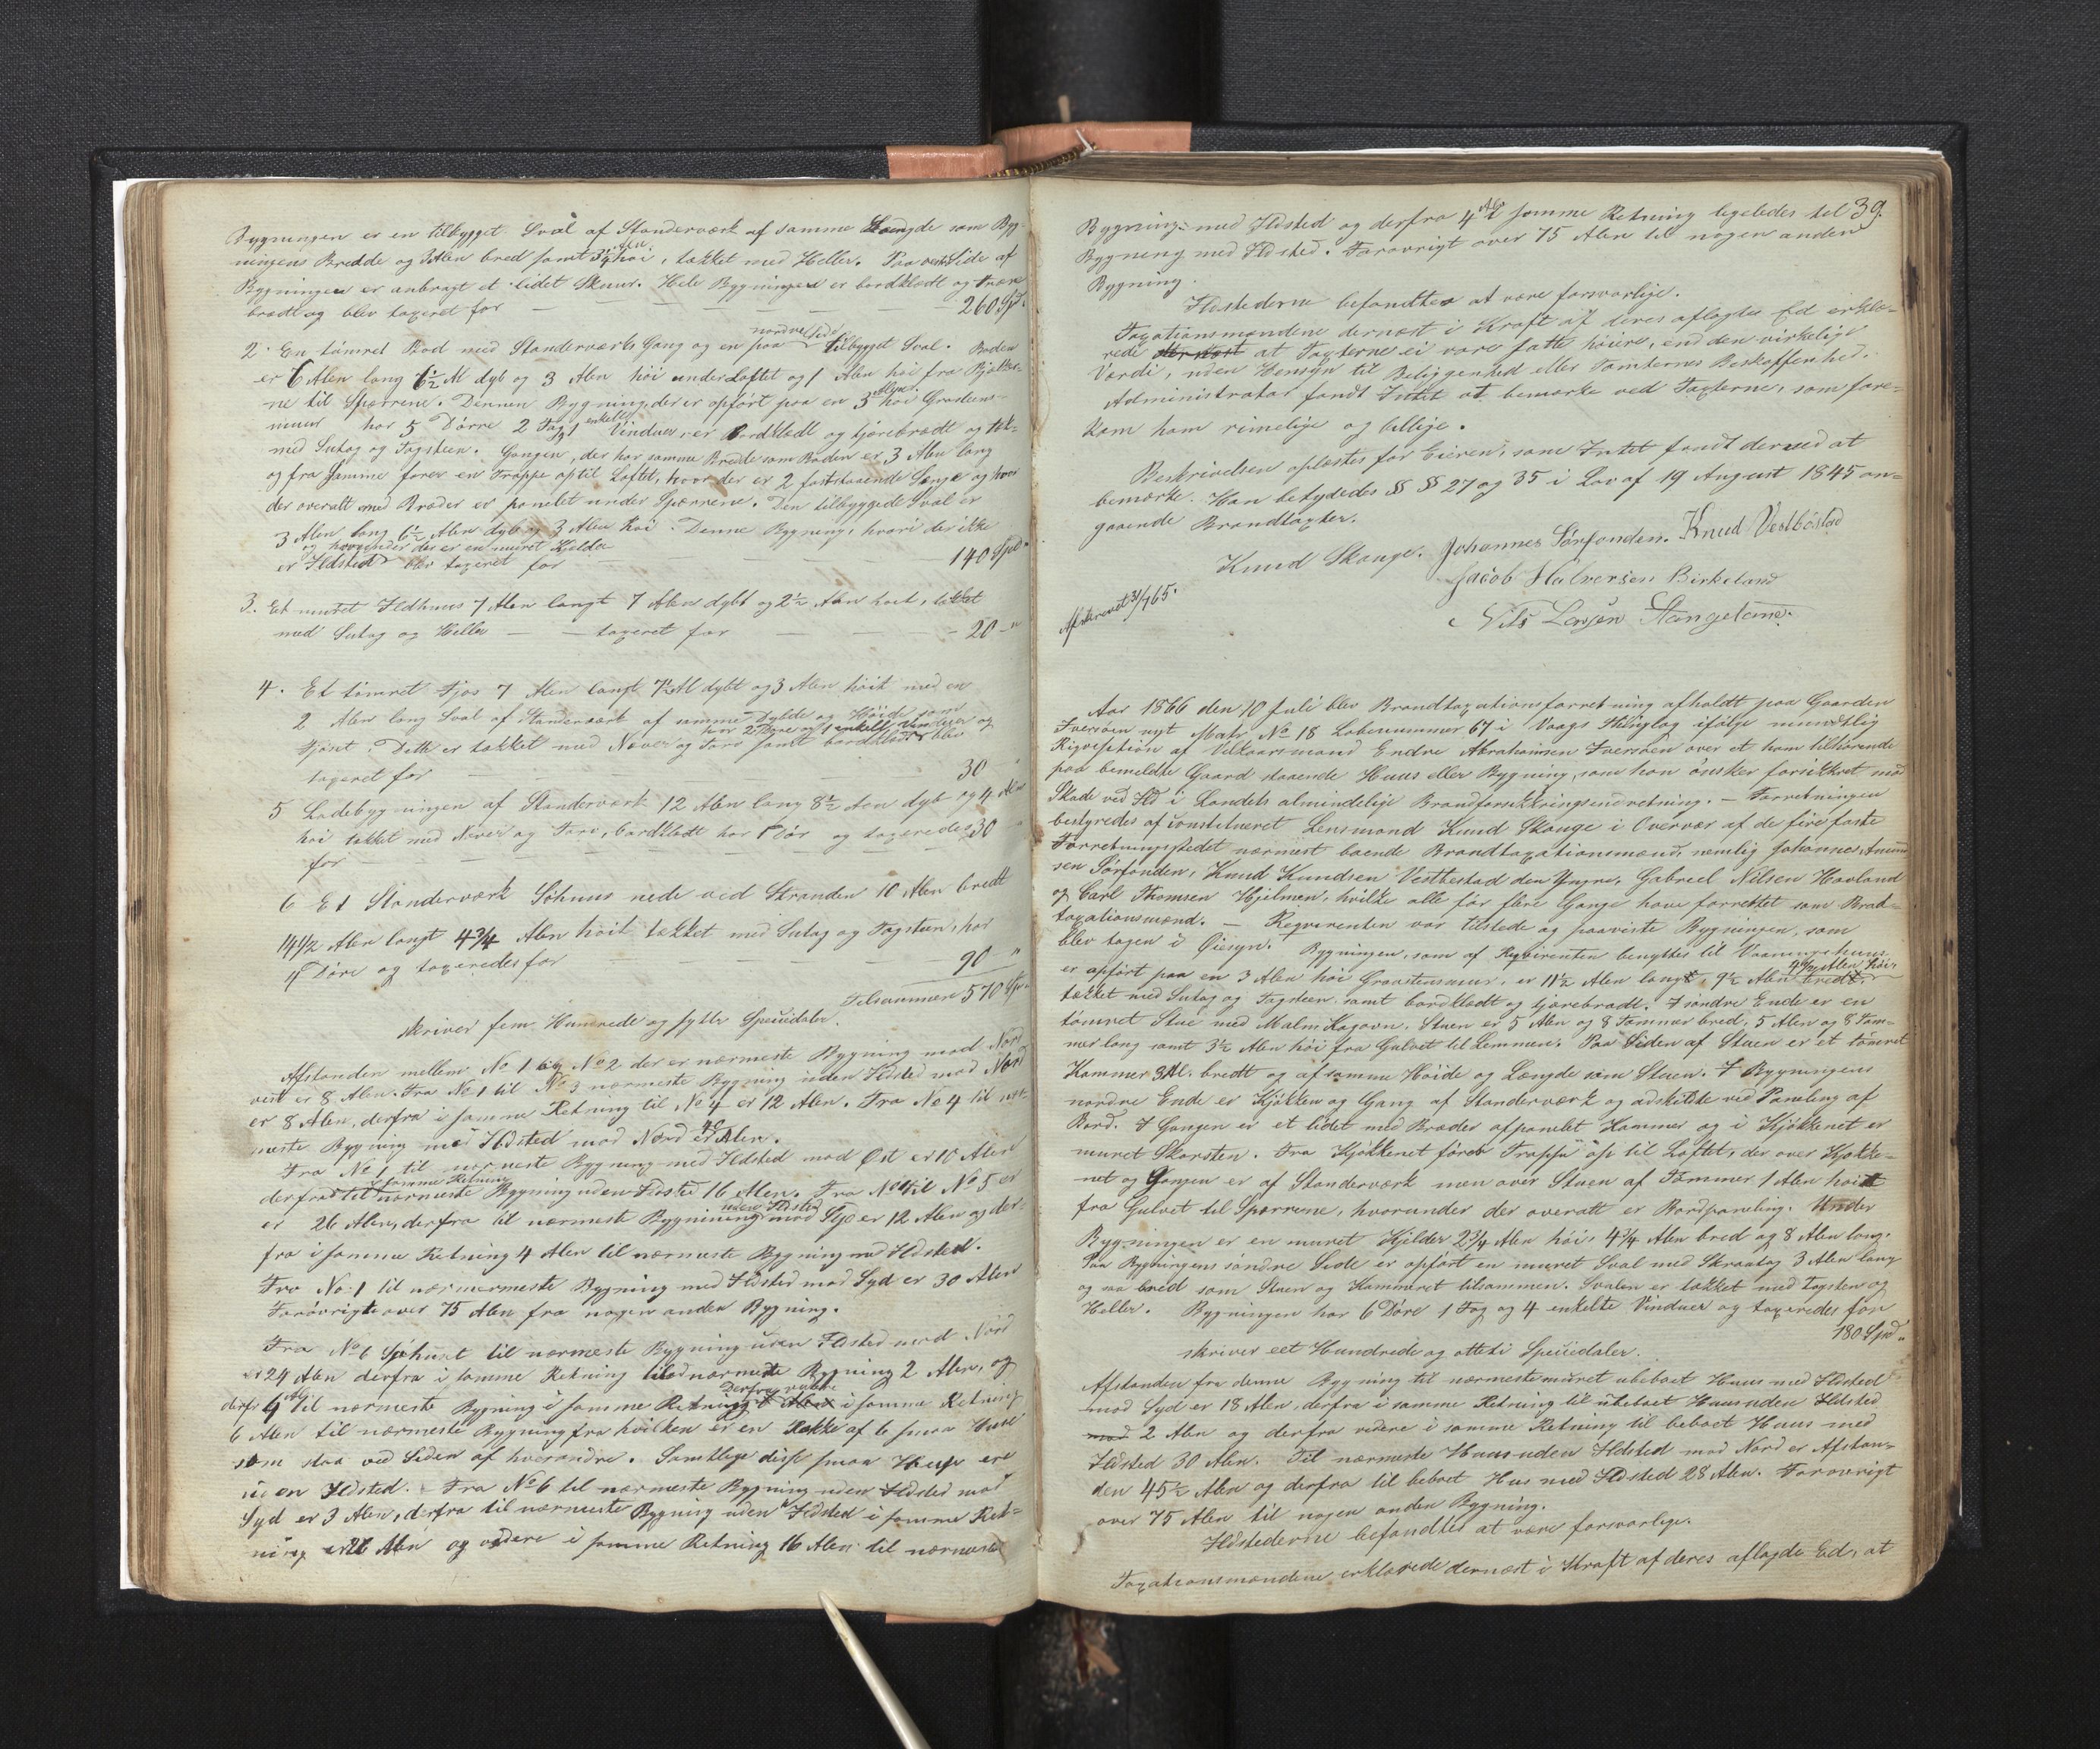 Bygningen er en tilbygget Sval af Standerværk af samme Længde som Byg-
ningens Bredde og 3 Alen bred samt 3¼ Alen høi, tækket med Heller. Paa vest Side af
Bygningen er anbragt et lidet Skuur. Hele Bygningen er bordklædt og tjære-
brædt og blev taxeret for — — — 260 Spd.
2. En tømret Bod med Standerværks Gang og en paa nordre Side tilbygget Sval. Boden
er 6 Alen lang 6½ Al dyb og 3 Alen høi under Loftet og 1 Alen høi fra Bjelker-
ne til Sparrene. Dennen Bygning, der er opført paa en 3 Alen høi Graasteens-
muur har 5 Dørre 2 Fag 1 enkelt Vinduer, er Bordklædt og tjærebrædt og tæk-
med Sutag og Tagsteen. Gangen, der har samme Bredde som Boden er 3 Alen lang
og fra Samme fører en Trappe op til Loftet, hvor der er 2 faststaaende Senge og hvor
der overalt med Bræder er panelet under Sparrene. Den tilbyggede Sval er
3 Alen lang 6½ Alen dyb og 3 Alen høi. Denne Bygning, hvori der ikke
og hvorunder der er en muret Kjelder
er Ildsted blev taxeret for — — 140 Spd.
3. Et muret Ildhuus 7 Alen langt 7 Alen dybt og 2½ Alen høit, tækket
med Sutag og Heller — — taxeret for — — 20 — "
4. Et tømret Fjøs 7 Alen langt 7½ Al dybt og 3 Alen høit med en
2 Alen lang Sval af Standerværk af samme Dybde og Høide som
har 2 Døre og 1 enkelt Vinduer og
Fjøset. Dette er tækket med Næver og Torv samt bordklædt blev
taxeret for — — — 30 — "
5 Ladebygningen af Standerværk 12 Alen lang 8½ Alen dyb og 4 Alen
høi tækket med Never og Torv, bordklædt har 1 Dør og taxeredes 30 "
for — — —
6 Et Standerværk Søhuus nede ved Stranden 10 Alen bredt
14½ Alen langt 4¾ Alen høit tækket med Sutag og Tagsteen, har
4 Døre og taxeredes for — — — 90 — "
Tilsammen 570 Spd.
skriver fem Hundrede og sytti Speciedaler.
Afstanden mellem No 1 og No 2 der er nærmeste Bygning mod Nord
vest er 8 Alen. Fra No 1 til No 3 nærmeste Bygning uden Ildsted mod Nord
er 8 Alen, derfra i samme Retning til No 4 er 12 Alen. Fra No 4 til nær-
meste Bygning med Ildsted mod Nord er 40 Alen.
Fra No 1 til nærmeste Bygning med Ildsted mod Øst er 10 Alen
i samme Retning
derfra til nærmeste Bygning uden Ildsted 16 Alen. Fra No 1 til No 5 er
er 26 Alen, derfra til nærmeste Bygning uden Ildsted mod Syd er 12 Alen og der-
fra i samme Retning 4 Alen til nærmeste Bygning med Ildsted.
Fra No: 1 til nærmeste Bygning med Ildsted mod Syd er 30 Alen
Forøvrigt over 75 Alen fra nogen anden Bygning.
Fra No 6 Søhuset til nærmeste Bygning uden Ildsted mod Nord
er 24 Alen derfra i samme Retning til nærmeste Bygning 2 Alen, og
derfr 9 Al til nærmeste Bygning i samme Retning Derfra videre i samme Retning
6 Alen til nærmeste Bygning fra hvilken er en Række af 6 smaa Huse
som staa ved Siden af hverandre. Samtlige disse smaa Huse ere
uden Ildsted. Fra No 6 til nærmeste Bygning uden Ildsted mod
Syd er 3 Alen, derfra til nærmeste Bygning uden Ildsted i samme Ret-
ning er 26 Alen og videre i samme Retning 16 Alen til nærmeste
39.
Bygning med Ildsted og derfra 4 Al samme Retning ligeledes til
Bygning med Ildsted. Forøvrigt over 75 Alen til nogen anden
Bygning.
Ildstederne befandtes at være forsvarlige.
Taxationsmændene dernæst i Kraft af deres aflagte Ed erklæ-
rede dernæst at Taxterne ei vare satte høiere, end den virkelige
Værdi, uden Hensyn til Beliggenhed eller Tomternes Beskaffenhed.
Administrator fandt Intet at bemærke ved Taxterne, som fore-
kom ham rimelige og billige.
Beskrivelsen oplæstes for Eieren, som Intet fandt derved at
bemærke. Han betydedes §§ 27 og 35 i Lov af 19 August 1845 an-
gaaende Brandtaxter.
Knud Skauge. Johannes Sørfonden. Knud Vestbøstad
Jacob Halversen Birkeland
Nils Larsen Stangeland.
Afskrevet 31/7 65.
Aar 1866 den 10 Juli blev Brandtaxationsforretning afholdt paa Gaarden
Iversøen nyt Matr. No 18 Løbenummer 67 i Vaags Thinglag ifølge mundtlig
Riqvisition af Vilkaarsmand Endre Abrahamsen Iversøen over et ham tilhørende
paa bemeldte Gaard staaende Huus eller Bygning, som han ønsker forsikkret mod
Skade ved Ild i Landets almindelige Brandforsikkringsindretning. — Forretningen
bestyredes af constitueret Lensmand Knud Skauge i Overvær af de fire faste
Forretningsstedet nærmest boende Brandtaxationsmænd, nemlig Johannes Amund-
sen Sørfonden, Knud Knudsen Vestbøstad den Yngre, Gabriel Nilsen Havland
og Carl Thomsen Hjelmen, hvilke alle før flere Gange have forrettet som Brand-
taxationsmænd. — Reqvirenten var tilstede og paaviste Bygningen, som
blev tagen i Øiesyn. Bygningen, som af Reqvirenten benyttes til Vaaningshuus
er opført paa en 3 Alen høi Graasteensmuur, er 11½ Alen langt, 9½ Alen bredt, 4½ Alen høi,
tækket med Sutag og Tagsteen samt bordklædt og tjærebrædt. I søndre Ende er en
tømret Stue med Malm Kagovn. Stuen er 5 Alen og 8 Tommer bred, 5 Alen og 8 Tom-
mer lang samt 3½ Alen høi fra Gulvet til Lemmen. Paa Siden af Stuen er et tømret
Kammer 3 Al. bredt og af samme Høide og Længde som Stuen. I Bygningens
nordre Ende er Kjøkken og Gang af Standerværk og adskildte ved Paneling af
Bord. I Gangen er et lidet med Bræder afpanelet Kammer og i Kjøkkenet er
muret Skorsten. Fra Kjøkkenet fører Trappe op til Loftet, der over Kjøkke-
net og Gangen er af Standerværk men over Stuen af Tømmer 1 Alen høit
fra Gulvet til Sparrene, hvorunder der overalt er Bordpaneling. Under
Bygningen er en muret Kjelder 2¾ Alen høi, 4¾ Alen bred og 8 Alen lang.
Paa Bygningens søndre Side er opført en muret Sval med Skraatag 3 Alen lang
og saa bred som Stuen og Kammeret tilsammen. Svalen er tækket med Tagsten og
Heller. Bygningen har 6 Døre 1 Fag og 4 enkelte Vinduer og taxeredes for
180 Spd.
skriver eet Hundrede og otteti Speciedaler.
Afstanden fra denne Bygning til nærmeste muret ubeboet Huus med Ildsted
mod Syd er 18 Alen, derfra i samme Retning til ubeboet Huus uden Ildsted
mod 2 Alen og derfra videre i samme Retning til beboet Huus med
Ildsted 30 Alen. Til nærmeste Huus uden Ildsted mod Nord er Afstan-
den 45½ Alen og derfra til beboet Hus med Ildsted 28 Alen. Forøvrigt
over 75 Alen til nogen anden Bygning.
Ildstederne befandtes at være forsvarlige.
Taxationsmændene erklærede dernæst i Kraft af deres aflagde Ed, at